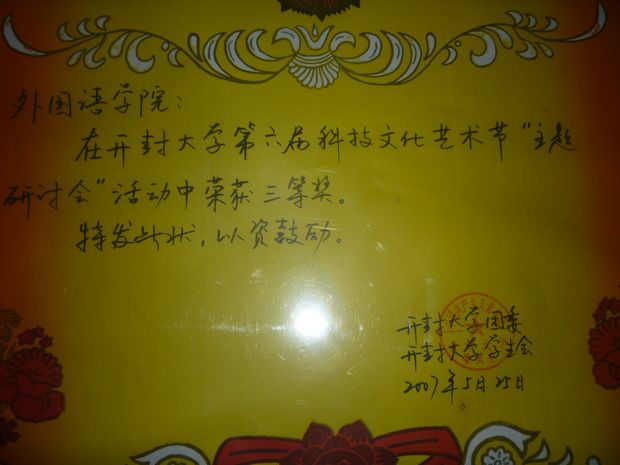 外国语学院：
在开封大学第六届科技文化艺术节“主题
研讨会”活动中荣获三等奖。
特发此状，以资鼓励。
开封大学团委
开封大学学生会
2007年5月25日